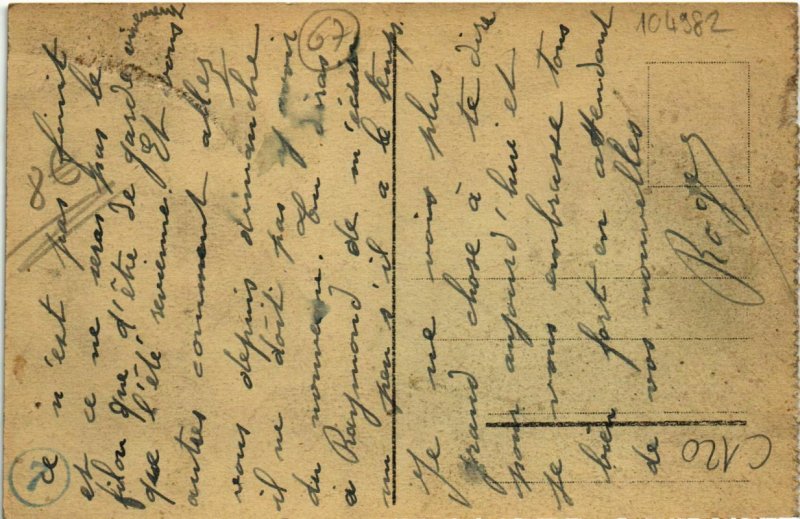 ce n'est pas finit
et ce ne seras pas le
filon que d'être de garde
que l'été revienne. Et vous
autres comment allez
vous depuis dimanche
il ne doit pas y avoir
du nouveau. Tu diras
à Raymond de m'écrire
un peu s'il a le temps.
Je ne vois plus
grand chose à te dire
pour aujourd'hui et
je vous embrasse tous
bien fort en attendant
de vos nouvelles
Roger
104982
67
86
C120